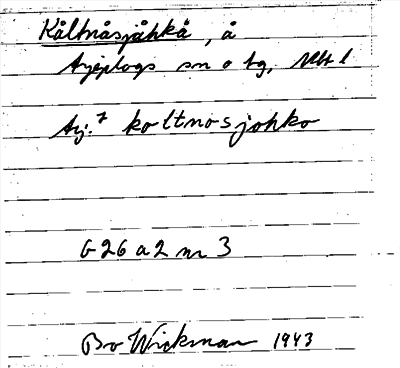 Kåltnåsjåhkå, å
Arjeplogs sn o tg, Nbt l
Arj. 7 koltnosjohko
G 26 a 2 nr 3
Bo Wickman 1943